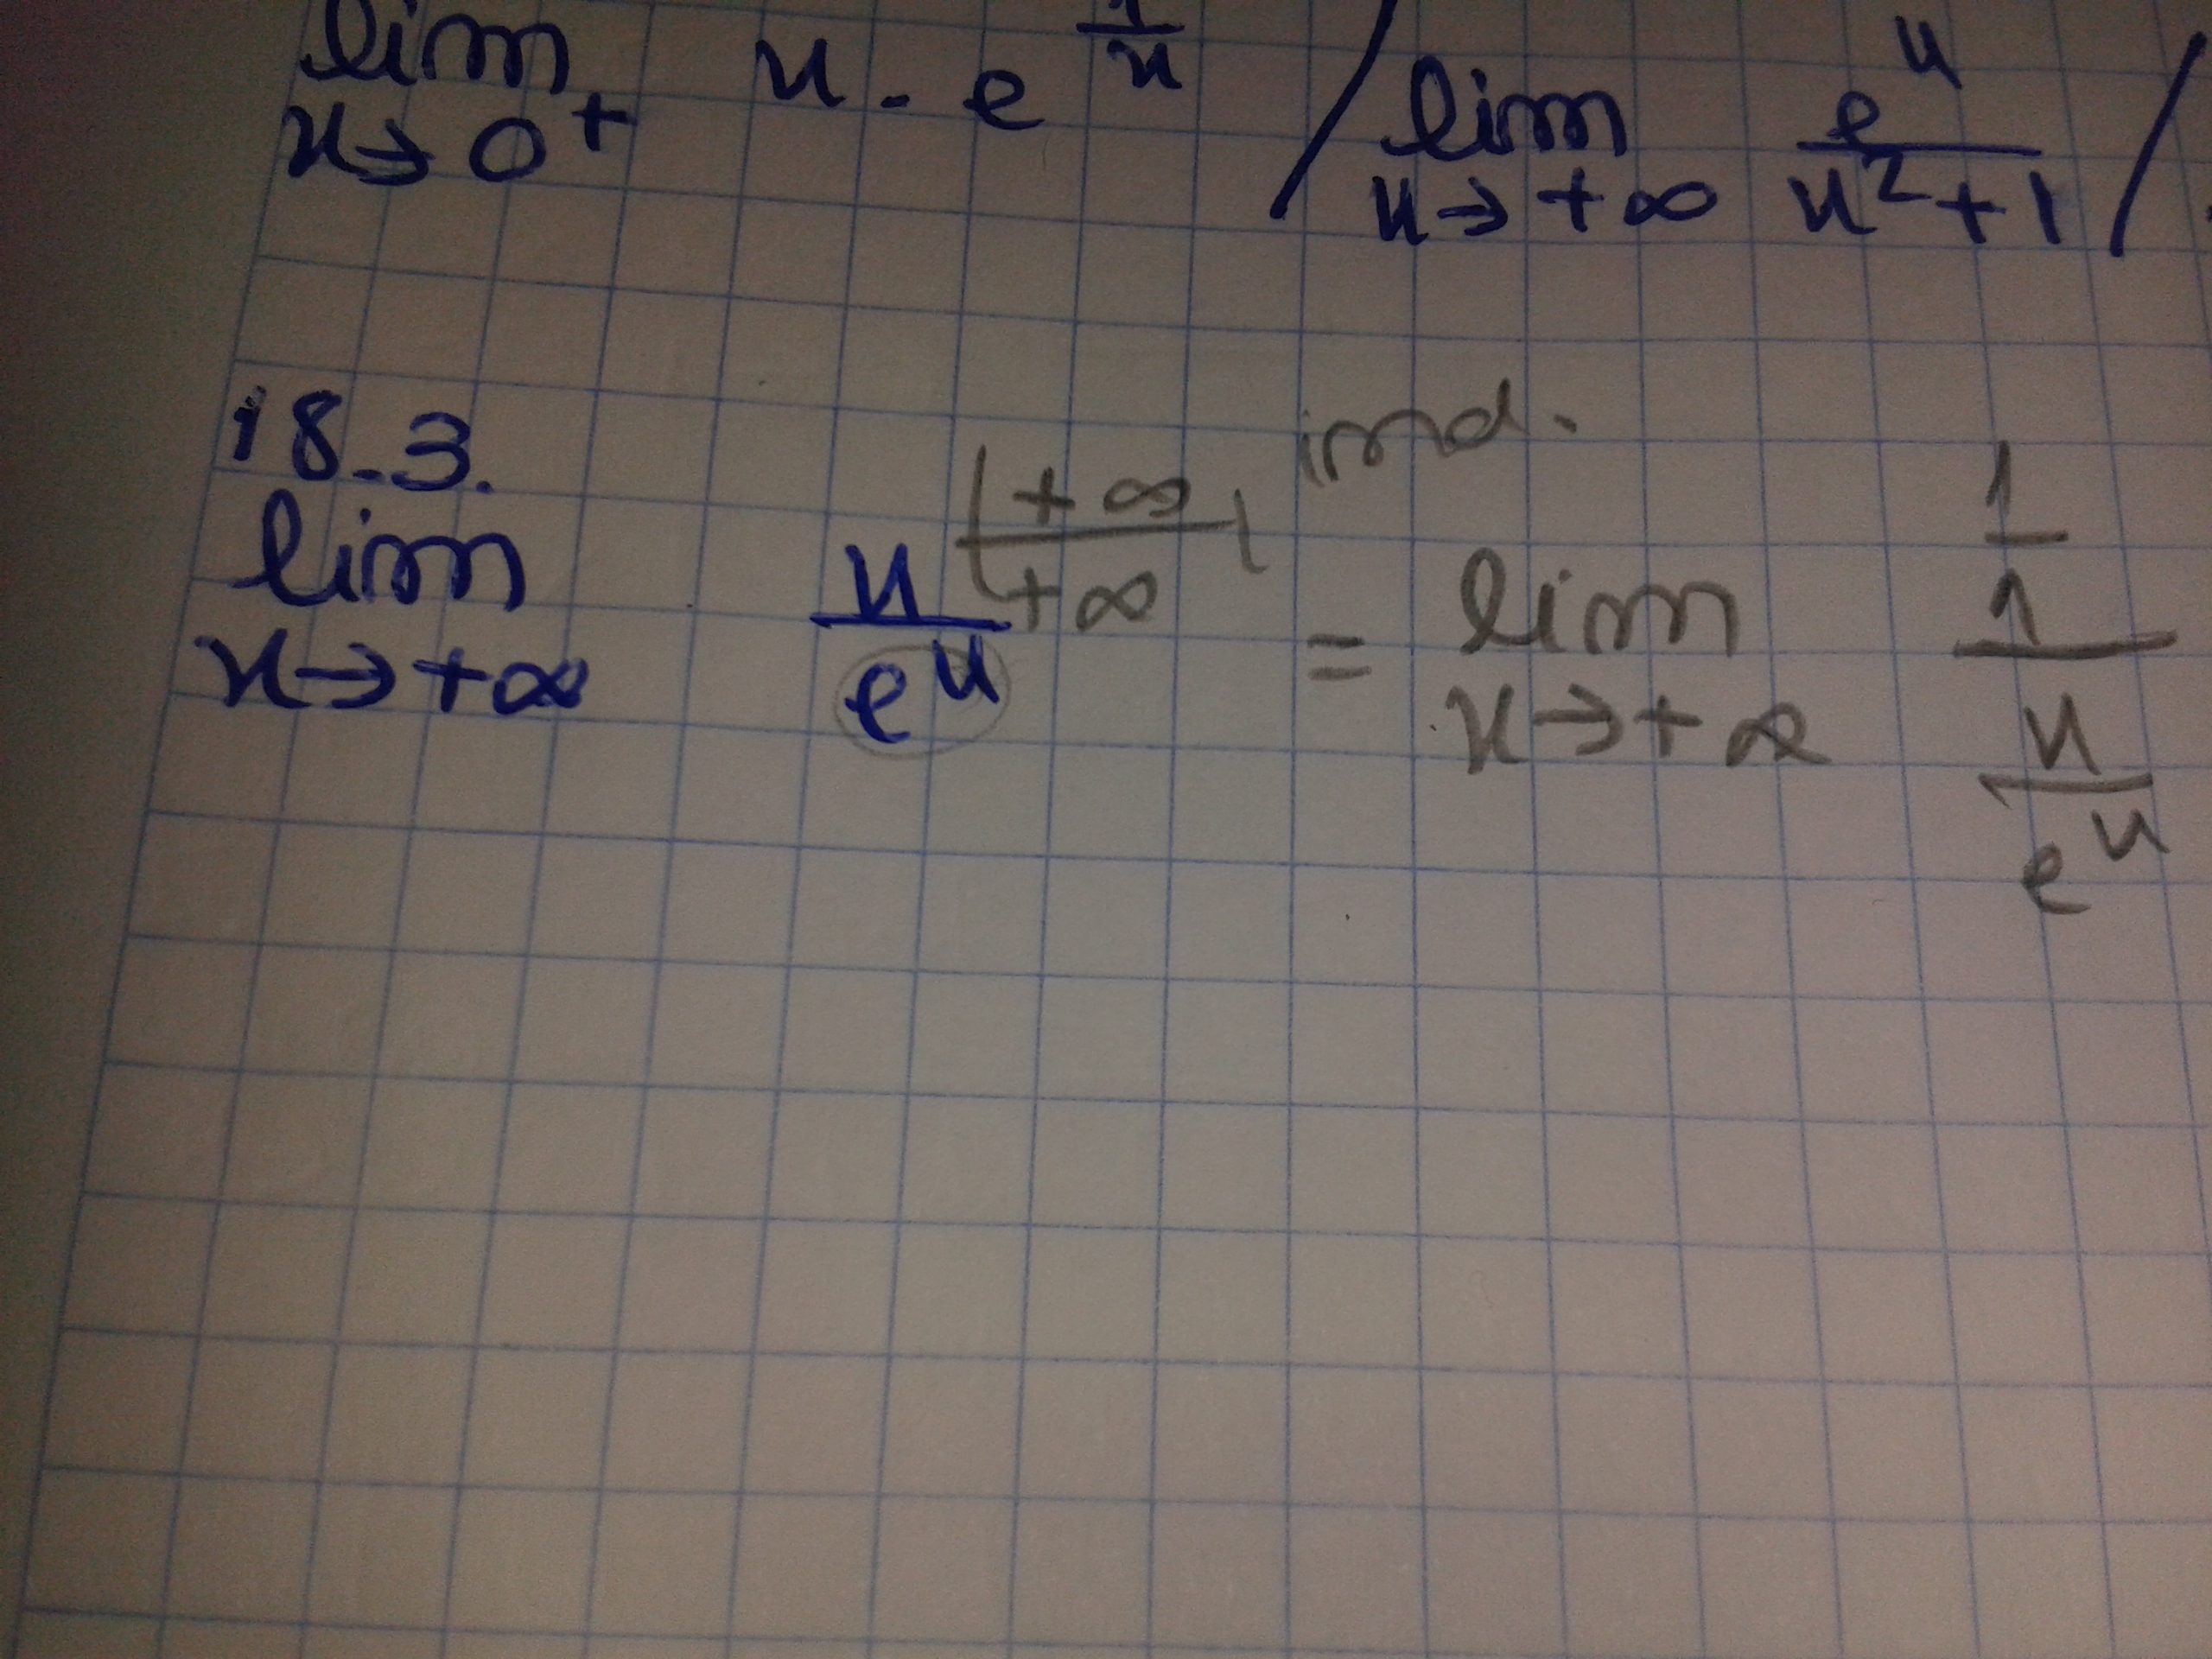 lim x→0⁺ x · e^(1/x) / lim x→+∞ e^x/(x²+1) /
18.3.
lim x→+∞ x/e^x (+∞/+∞) ind. = lim x→+∞ (1/1)/(x/e^x)